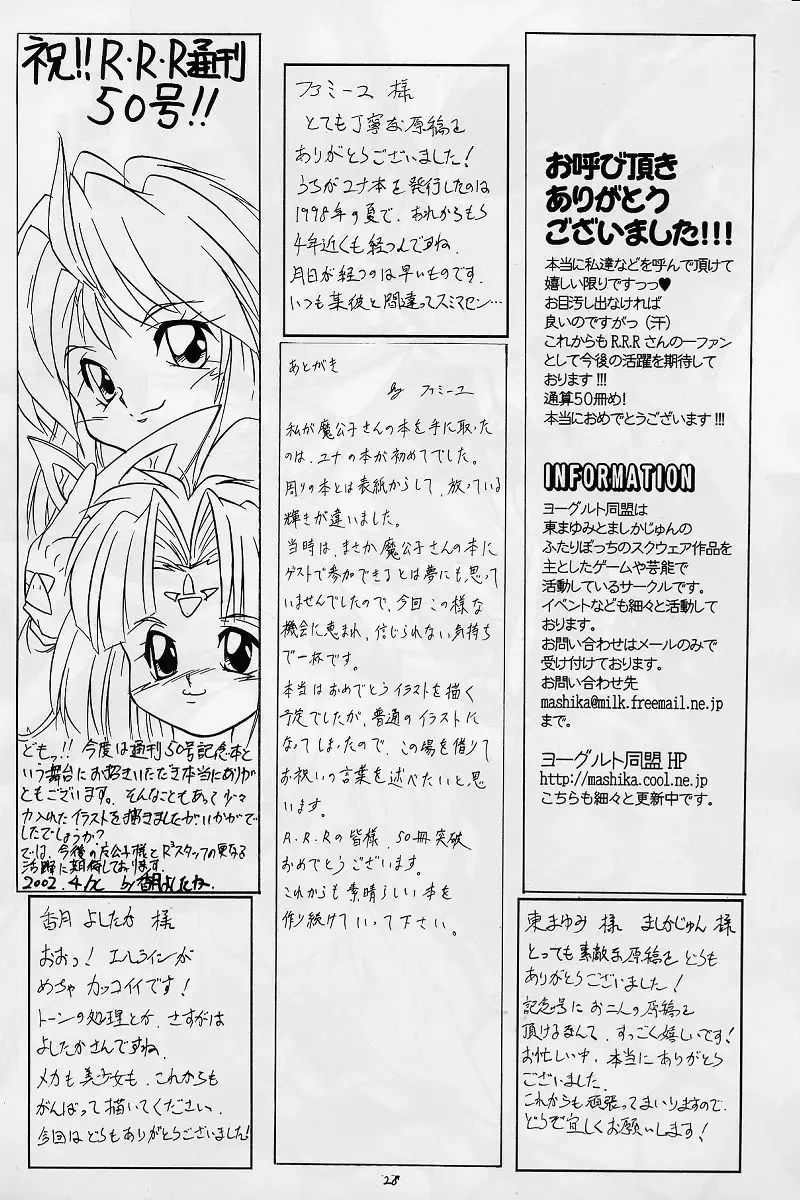 祝!!R・R・R通刊
50号!!
どもっ!!今度は通刊50号記念本と
いう舞台にお招きいただき本当にありが
ともございます。そんなこともあって少々
力入れたイラストを描きましたがいかがで
したでしょうか?
では、今後の
公子様とR³スタッフの更なる
活躍に期待しております。
2002.4/
by香月よしたか.
香月 よしたか 様
おおっ!エルラインが
めちゃ カッコイイです!
トーンの処理とか、さすがは
よしたかさんですね.
メカも美少女も、これからも
がんばって描いてください.
今回はどうもありがとうございました!
ファミーユ 様
とても丁寧な原稿を
ありがとうございました!
うちがユナ本を発行したのは
1998年の夏で、あれからもう
4年近くも経つんですね.
月日が経つのは早いものです.
いつも某彼と間違ってスミマセン…
あとがき
By ファミーユ
私が魔公子さんの本を手に取った
のは、ユナの本が初めてでした。
周りの本とは表紙からして、放っている
輝きが違いました。
当時は、まさか魔公子さんの本に
ゲストで参加できるとは夢にも思って
いませんでしたので、今回この様な
機会に恵まれ、信じられない気持ち
で一杯です。
本当はおめでとうイラストを描く
予定でしたが、普通のイラストに
なってしまったので、この場を借りて
お祝いの言葉を述べたいと思
います。
R.R.Rの皆様、50冊突破
おめでとうございます。
これからも素晴らしい本を
作り続けていって下さい。
お呼び頂き
ありがとう
ございました!!!
本当に私達などを呼んで頂けて
嬉しい限りですっっ♥
お目汚し出なければ
良いのですがっ(汗)
これからもR.R.Rさんの一ファン
として今後の活躍を期待して
おります!!!
通算50冊め!
本当におめでとうございます!!!
INFORMATION
ヨーグルト同盟は
東まゆみとましかじゅんの
ふたりぼっちのスクウェア作品を
主としたゲームや芸能で
活動しているサークルです。
イベントなども細々と活動して
おります。
お問い合わせはメールのみで
受け付けております。
お問い合わせ先
mashika@milk.freemail.ne.jp
まで。
ヨーグルト同盟 HP
http://mashika.cool.ne.jp
こちらも細々と更新中です。
東まゆみ 様 ましかじゅん 様
とっても素敵な原稿をどうも
ありがとうございました!
記念号にお二人の原稿を
頂けるなんて、すっごく嬉しいです!
お忙しい中、本当にありがとう
ございました.
これからも頑張ってまいりますので、
どうぞ宜しくお願いします!
28